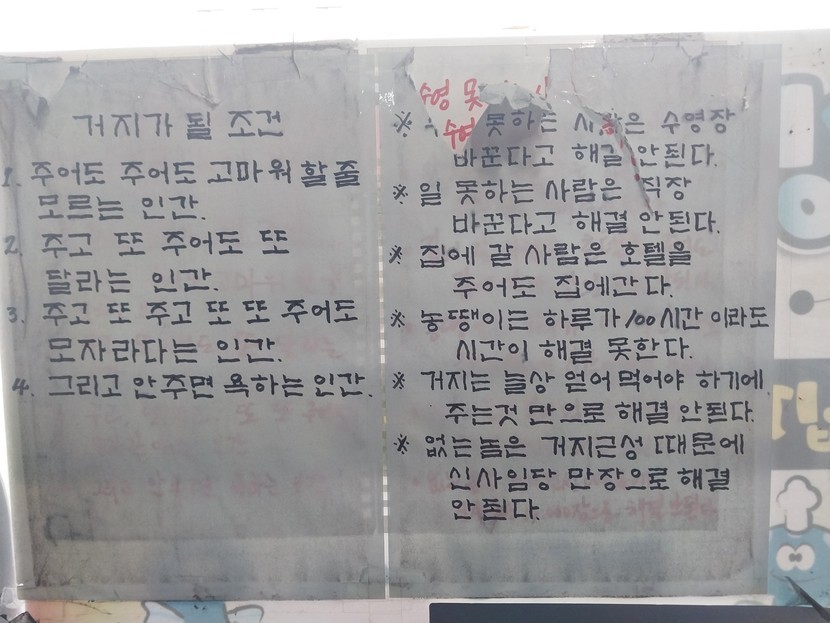 거지가 될 조건
1. 주어도 주어도 고마워 할 줄
모르는 인간.
2. 주고 또 주어도 또
달라는 인간.
3. 주고 또 주고 또 또 주어도
모자라다는 인간.
4. 그리고 안주면 욕하는 인간.
수영 못
수영
※ 못하는 사람은 수영장
바꾼다고 해결 안된다.
※ 일 못하는 사람은 직장
바꾼다고 해결 안된다.
※ 집에 갈 사람은 호텔을
주어도 집에간다.
※ 농땡이는 하루가 100시간 이라도
시간이 해결 못한다.
※ 거지는 늘상 얻어 먹어야 하기에
주는것 만으로 해결 안된다.
※ 없는놈은 거지근성 때문에
신사임당 만장으로 해결
안된다.